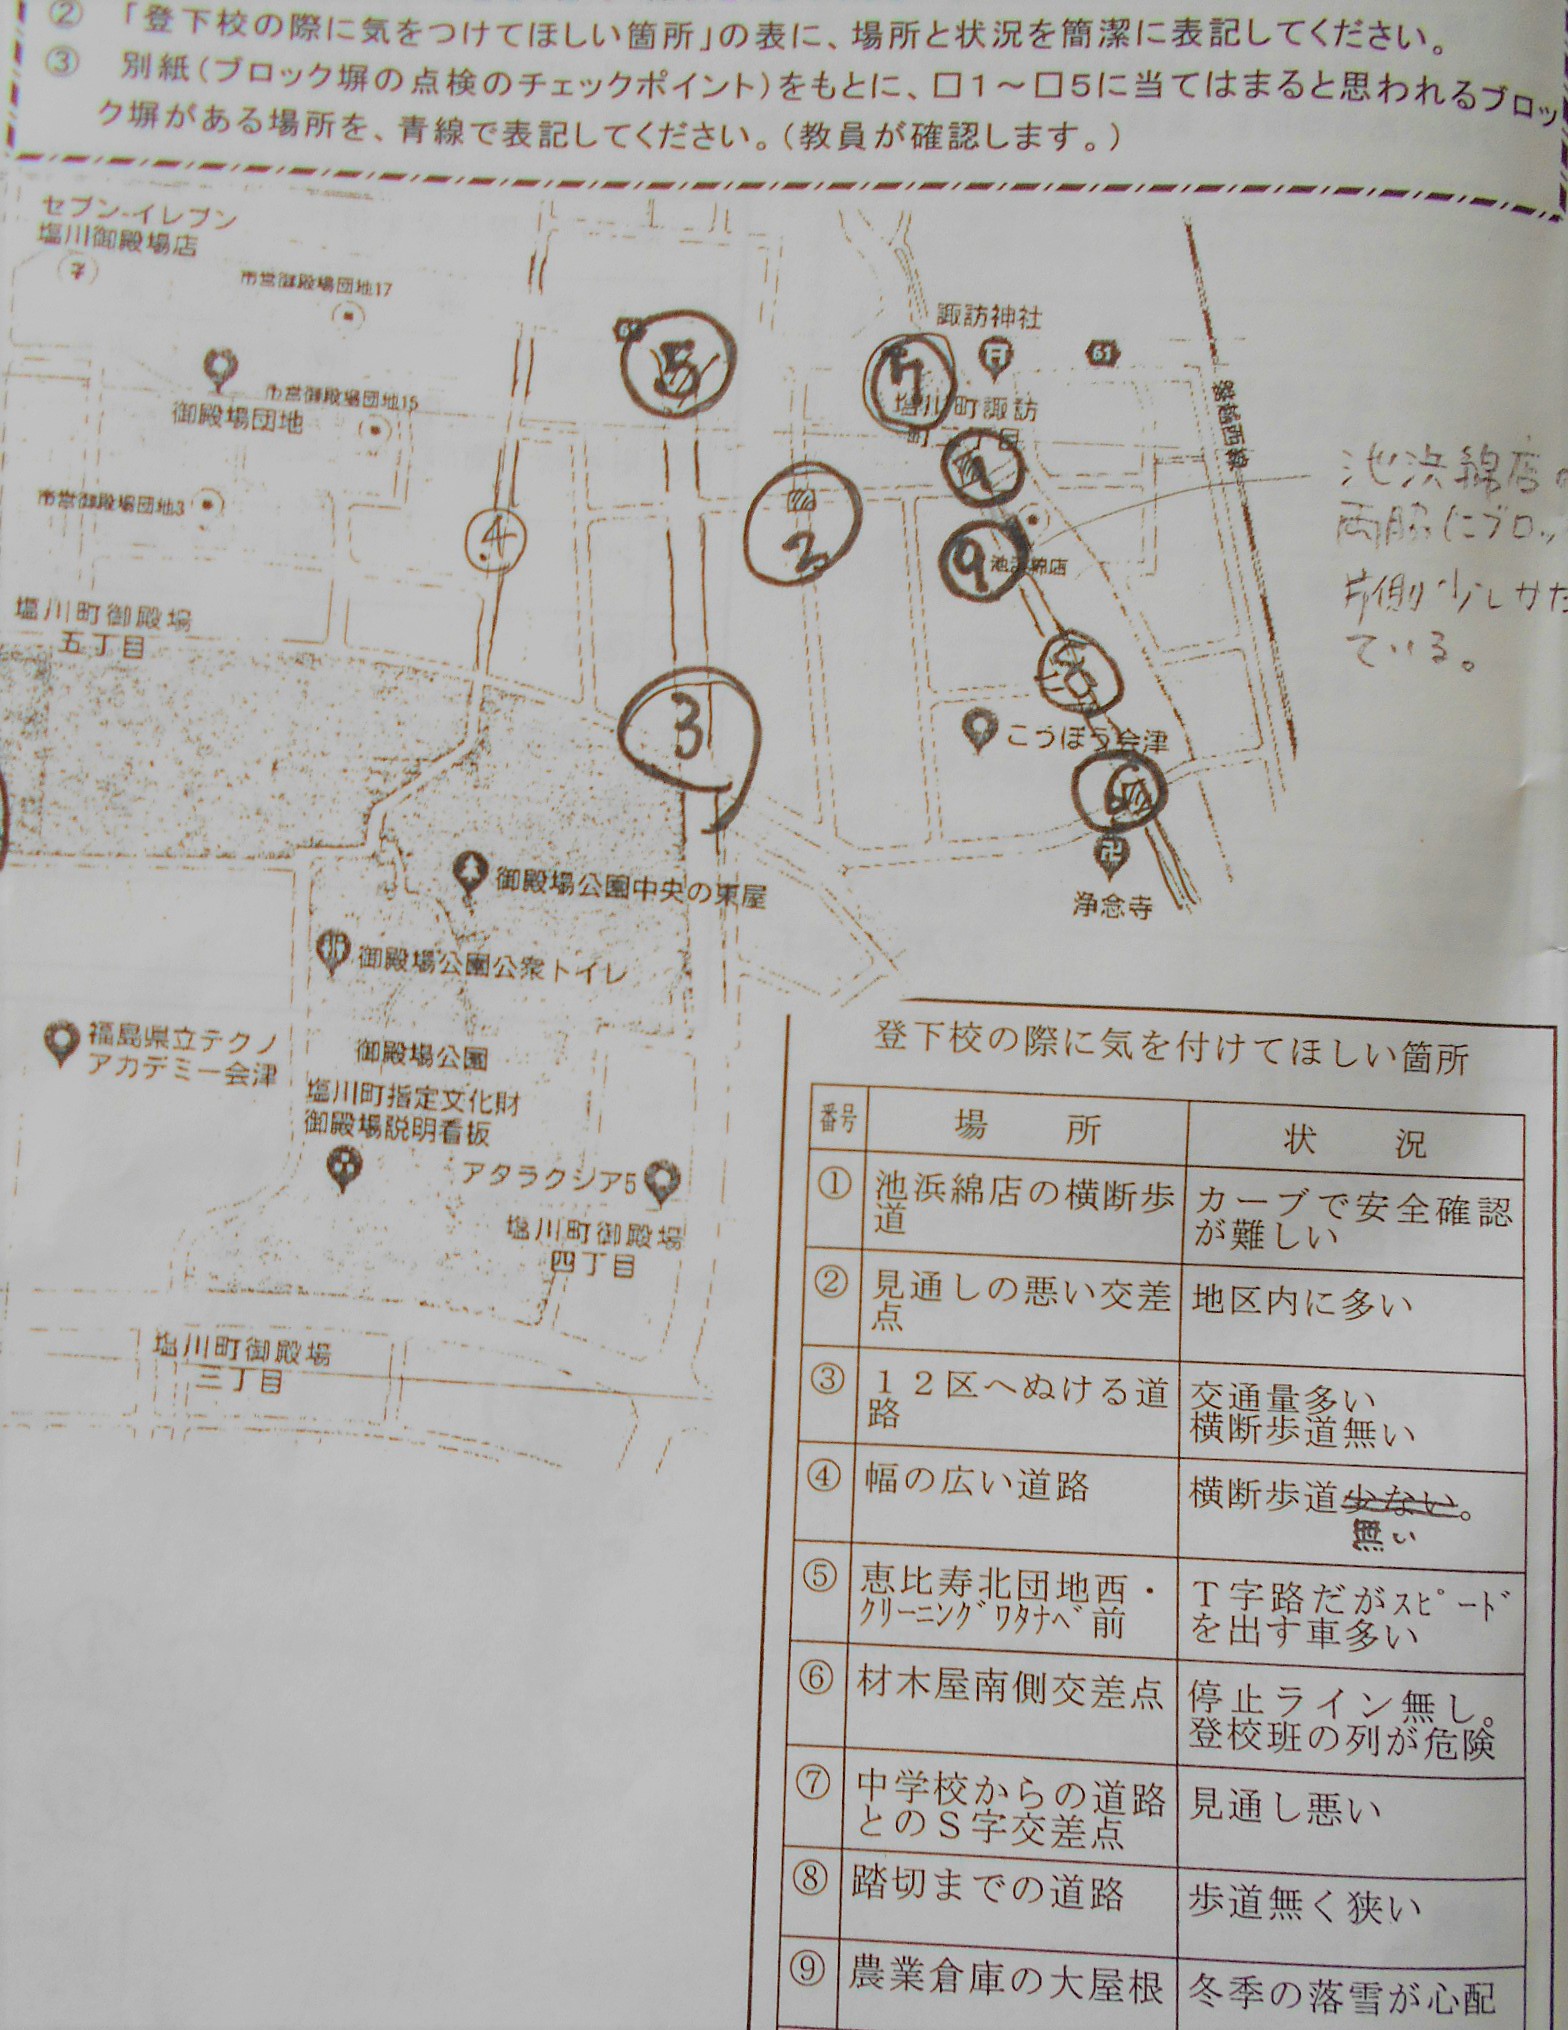 ② 「登下校の際に気をつけてほしい箇所」の表に、場所と状況を簡潔に表記してください。
③ 別紙(ブロック塀の点検のチェックポイント)をもとに、□1～□5に当てはまると思われるブロッ
ク塀がある場所を、青線で表記してください。(教員が確認します。)
セブン-イレブン
塩川御殿場店
市営御殿場団地17
御殿場団地
市営御殿場団地15
市営御殿場団地3
塩川町御殿場
五丁目
諏訪神社
61
塩川町諏訪
磐越西線
5
7
1
2
4
9
池浜綿店
3
8
6
こうぼう会津
浄念寺
池浜綿店
両脇にブロッ
片側少し
ている。
御殿場公園中央の東屋
御殿場公園公衆トイレ
福島県立テクノ
アカデミー会津
御殿場公園
塩川町指定文化財
御殿場説明看板
アタラクシア5
塩川町御殿場
四丁目
塩川町御殿場
三丁目
登下校の際に気を付けてほしい箇所
番号 場 所 状 況
① 池浜綿店の横断歩 カーブで安全確認
道 が難しい
② 見通しの悪い交差 地区内に多い
点
③ 12区へぬける道 交通量多い
路 横断歩道無い
④ 幅の広い道路 横断歩道少ない。
無い
⑤ 恵比寿北団地西・ T字路だがｽﾋﾟｰﾄﾞ
ｸﾘｰﾆﾝｸﾞﾜﾀﾅﾍﾞ前 を出す車多い
⑥ 材木屋南側交差点 停止ライン無し。
登校班の列が危険
⑦ 中学校からの道路 見通し悪い
とのS字交差点
⑧ 踏切までの道路 歩道無く狭い
⑨ 農業倉庫の大屋根 冬季の落雪が心配